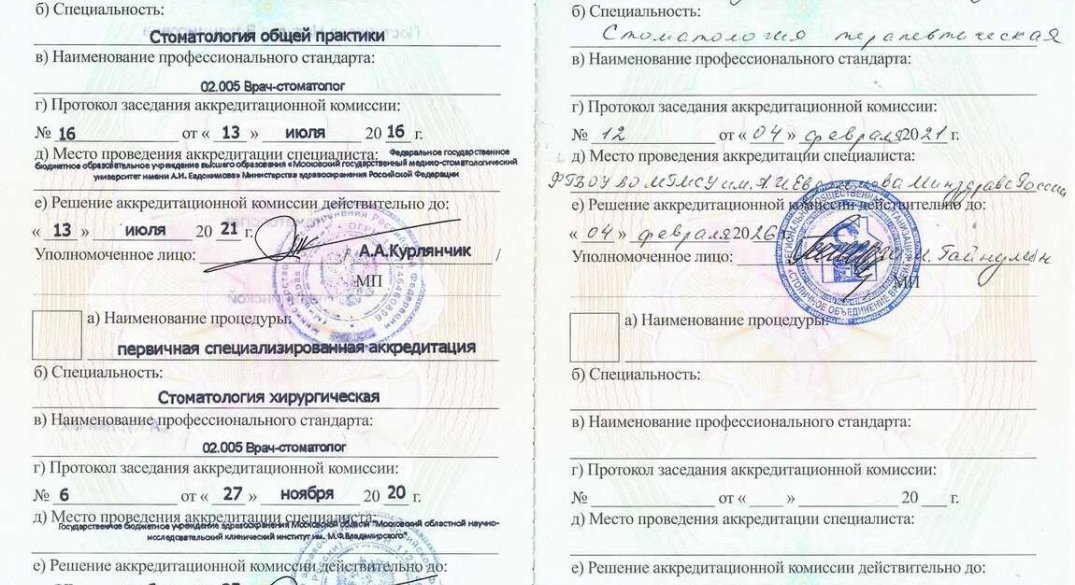 б) Специальность:
Стоматология общей практики
в) Наименование профессионального стандарта:
02.005 Врач-стоматолог
г) Протокол заседания аккредитационной комиссии:
№ 16 от « 13 » июля 20 16 г.
д) Место проведения аккредитации специалиста: Федеральное государственное
бюджетное образовательное учреждение высшего образования «Московский государственный медико-стоматологический
университет имени А.И. Евдокимова» Министерства здравоохранения Российской Федерации
е) Решение аккредитационной комиссии действительно до:
« 13 » июля 20 21 г.
Уполномоченное лицо: / А.А.Курлянчик /
МП
а) Наименование процедуры:
первичная специализированная аккредитация
б) Специальность:
Стоматология хирургическая
в) Наименование профессионального стандарта:
02.005 Врач-стоматолог
г) Протокол заседания аккредитационной комиссии:
№ 6 от « 27 » ноября 20 20 г.
д) Место проведения аккредитации специалиста:
Государственное бюджетное учреждение здравоохранения Московской области "Московский областной научно-
исследовательский клинический институт им. М.Ф.Владимирского"
е) Решение аккредитационной комиссии действительно до:
б) Специальность:
Стоматология терапевтическая
в) Наименование профессионального стандарта:
г) Протокол заседания аккредитационной комиссии:
№ 12 от « 04 » февраля 2021 г.
д) Место проведения аккредитации специалиста:
ФГБОУ ВО МГМСУ им. А.И. Евдокимова Минздрава России
е) Решение аккредитационной комиссии действительно до:
« 04 » февраля 2026 г.
Уполномоченное лицо:
МП
а) Наименование процедуры:
б) Специальность:
в) Наименование профессионального стандарта:
г) Протокол заседания аккредитационной комиссии:
№ от « » 20 г.
д) Место проведения аккредитации специалиста:
е) Решение аккредитационной комиссии действительно до: